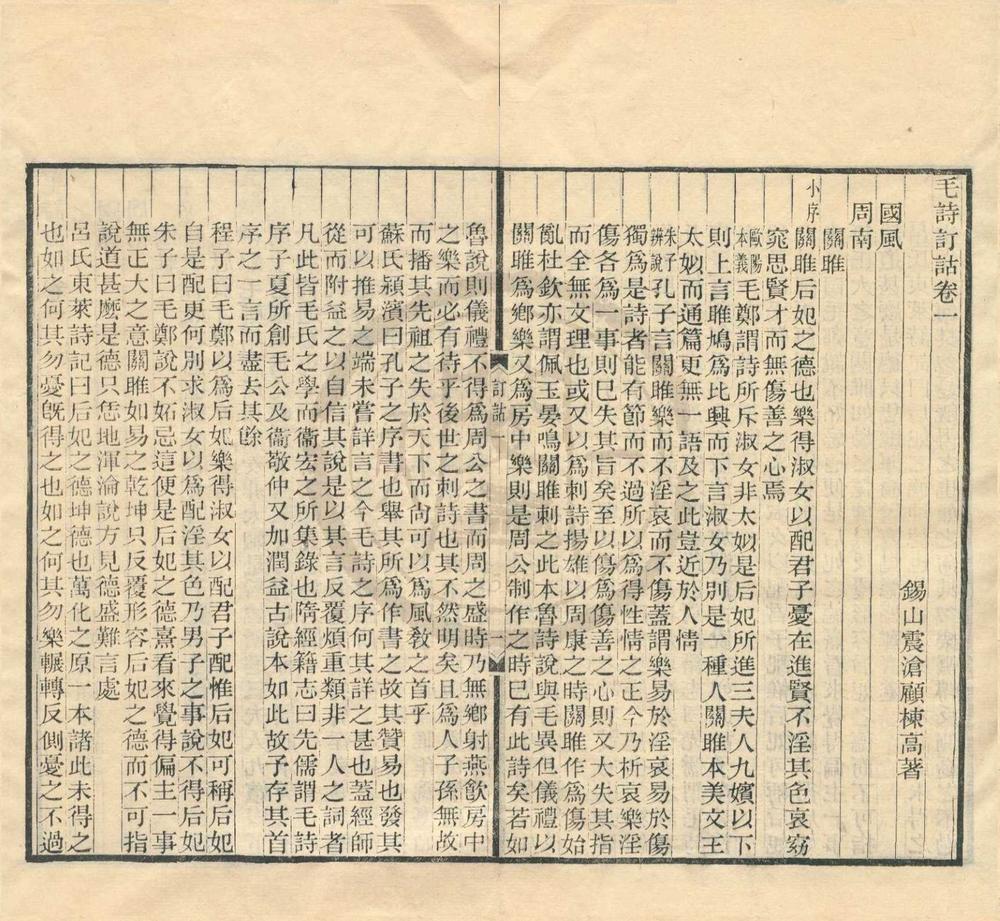 毛詩訂詁卷一
錫山震滄顧棟高著
國風
周南
關雎
小序 關雎后妃之德也樂得淑女以配君子憂在進賢不淫其色哀窈
窕思賢才而無傷善之心焉
歐陽本義 毛鄭謂詩所斥淑女非太姒是后妃所進三夫人九嬪以下
則上言雎鳩為比興而下言淑女乃別是一種人關雎本美文王
太姒而通篇更無一語及之此豈近於人情
朱子辨說 孔子言關雎樂而不淫哀而不傷蓋謂樂易於淫哀易於傷
獨為是詩者能有節而不過所以為得性情之正今乃析哀樂淫
傷各為一事則已失其旨矣至以傷為傷善之心則又大失其指
而全無文理也或又以為刺詩揚雄以周康之時關雎作為傷始
亂杜欽亦謂佩玉晏鳴關雎刺之此本魯詩說與毛異但儀禮以
關雎為鄉樂又為房中樂則是周公制作之時已有此詩矣若如
訂詁 一
一
魯說則儀禮不得為周公之書而周之盛時乃無鄉射燕飲房中
之樂而必有待乎後世之刺詩也其不然明矣且為人子孫無故
而播其先祖之失於天下而尚可以為風教之首乎
蘇氏潁濱曰孔子之序書也舉其所為作書之故其贊易也發其
可以推易之端未嘗詳言之今毛詩之序何其詳之甚也蓋經師
從而附益之以自信其說是以其言反覆煩重類非一人之詞者
凡此皆毛氏之學而衞宏之所集錄也隋經籍志曰先儒謂毛詩
序子夏所創毛公及衞敬仲又加潤益古說本如此故予存其首
序之一言而盡去其餘
程子曰毛鄭以為后妃樂得淑女以配君子配惟后妃可稱后妃
自是配更何別求淑女以為配淫其色乃男子之事說不得后妃
朱子曰毛鄭說不妬忌這便是后妃之德熹看來覺得偏主一事
無正大之意關雎如易之乾坤只反覆形容后妃之德而不可指
說道甚麼是德只恁地渾淪說方見德盛難言處
呂氏東萊詩記曰后妃之德坤德也萬化之原一本諸此未得之
也如之何其勿憂旣得之也如之何其勿樂輾轉反側憂之不過